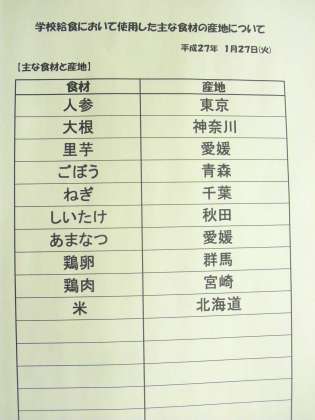 学校給食において使用した主な食材の産地について
平成27年 1月27日(火)
【主な食材と産地】
食材 産地
人参 東京
大根 神奈川
里芋 愛媛
ごぼう 青森
ねぎ 千葉
しいたけ 秋田
あまなつ 愛媛
鶏卵 群馬
鶏肉 宮崎
米 北海道